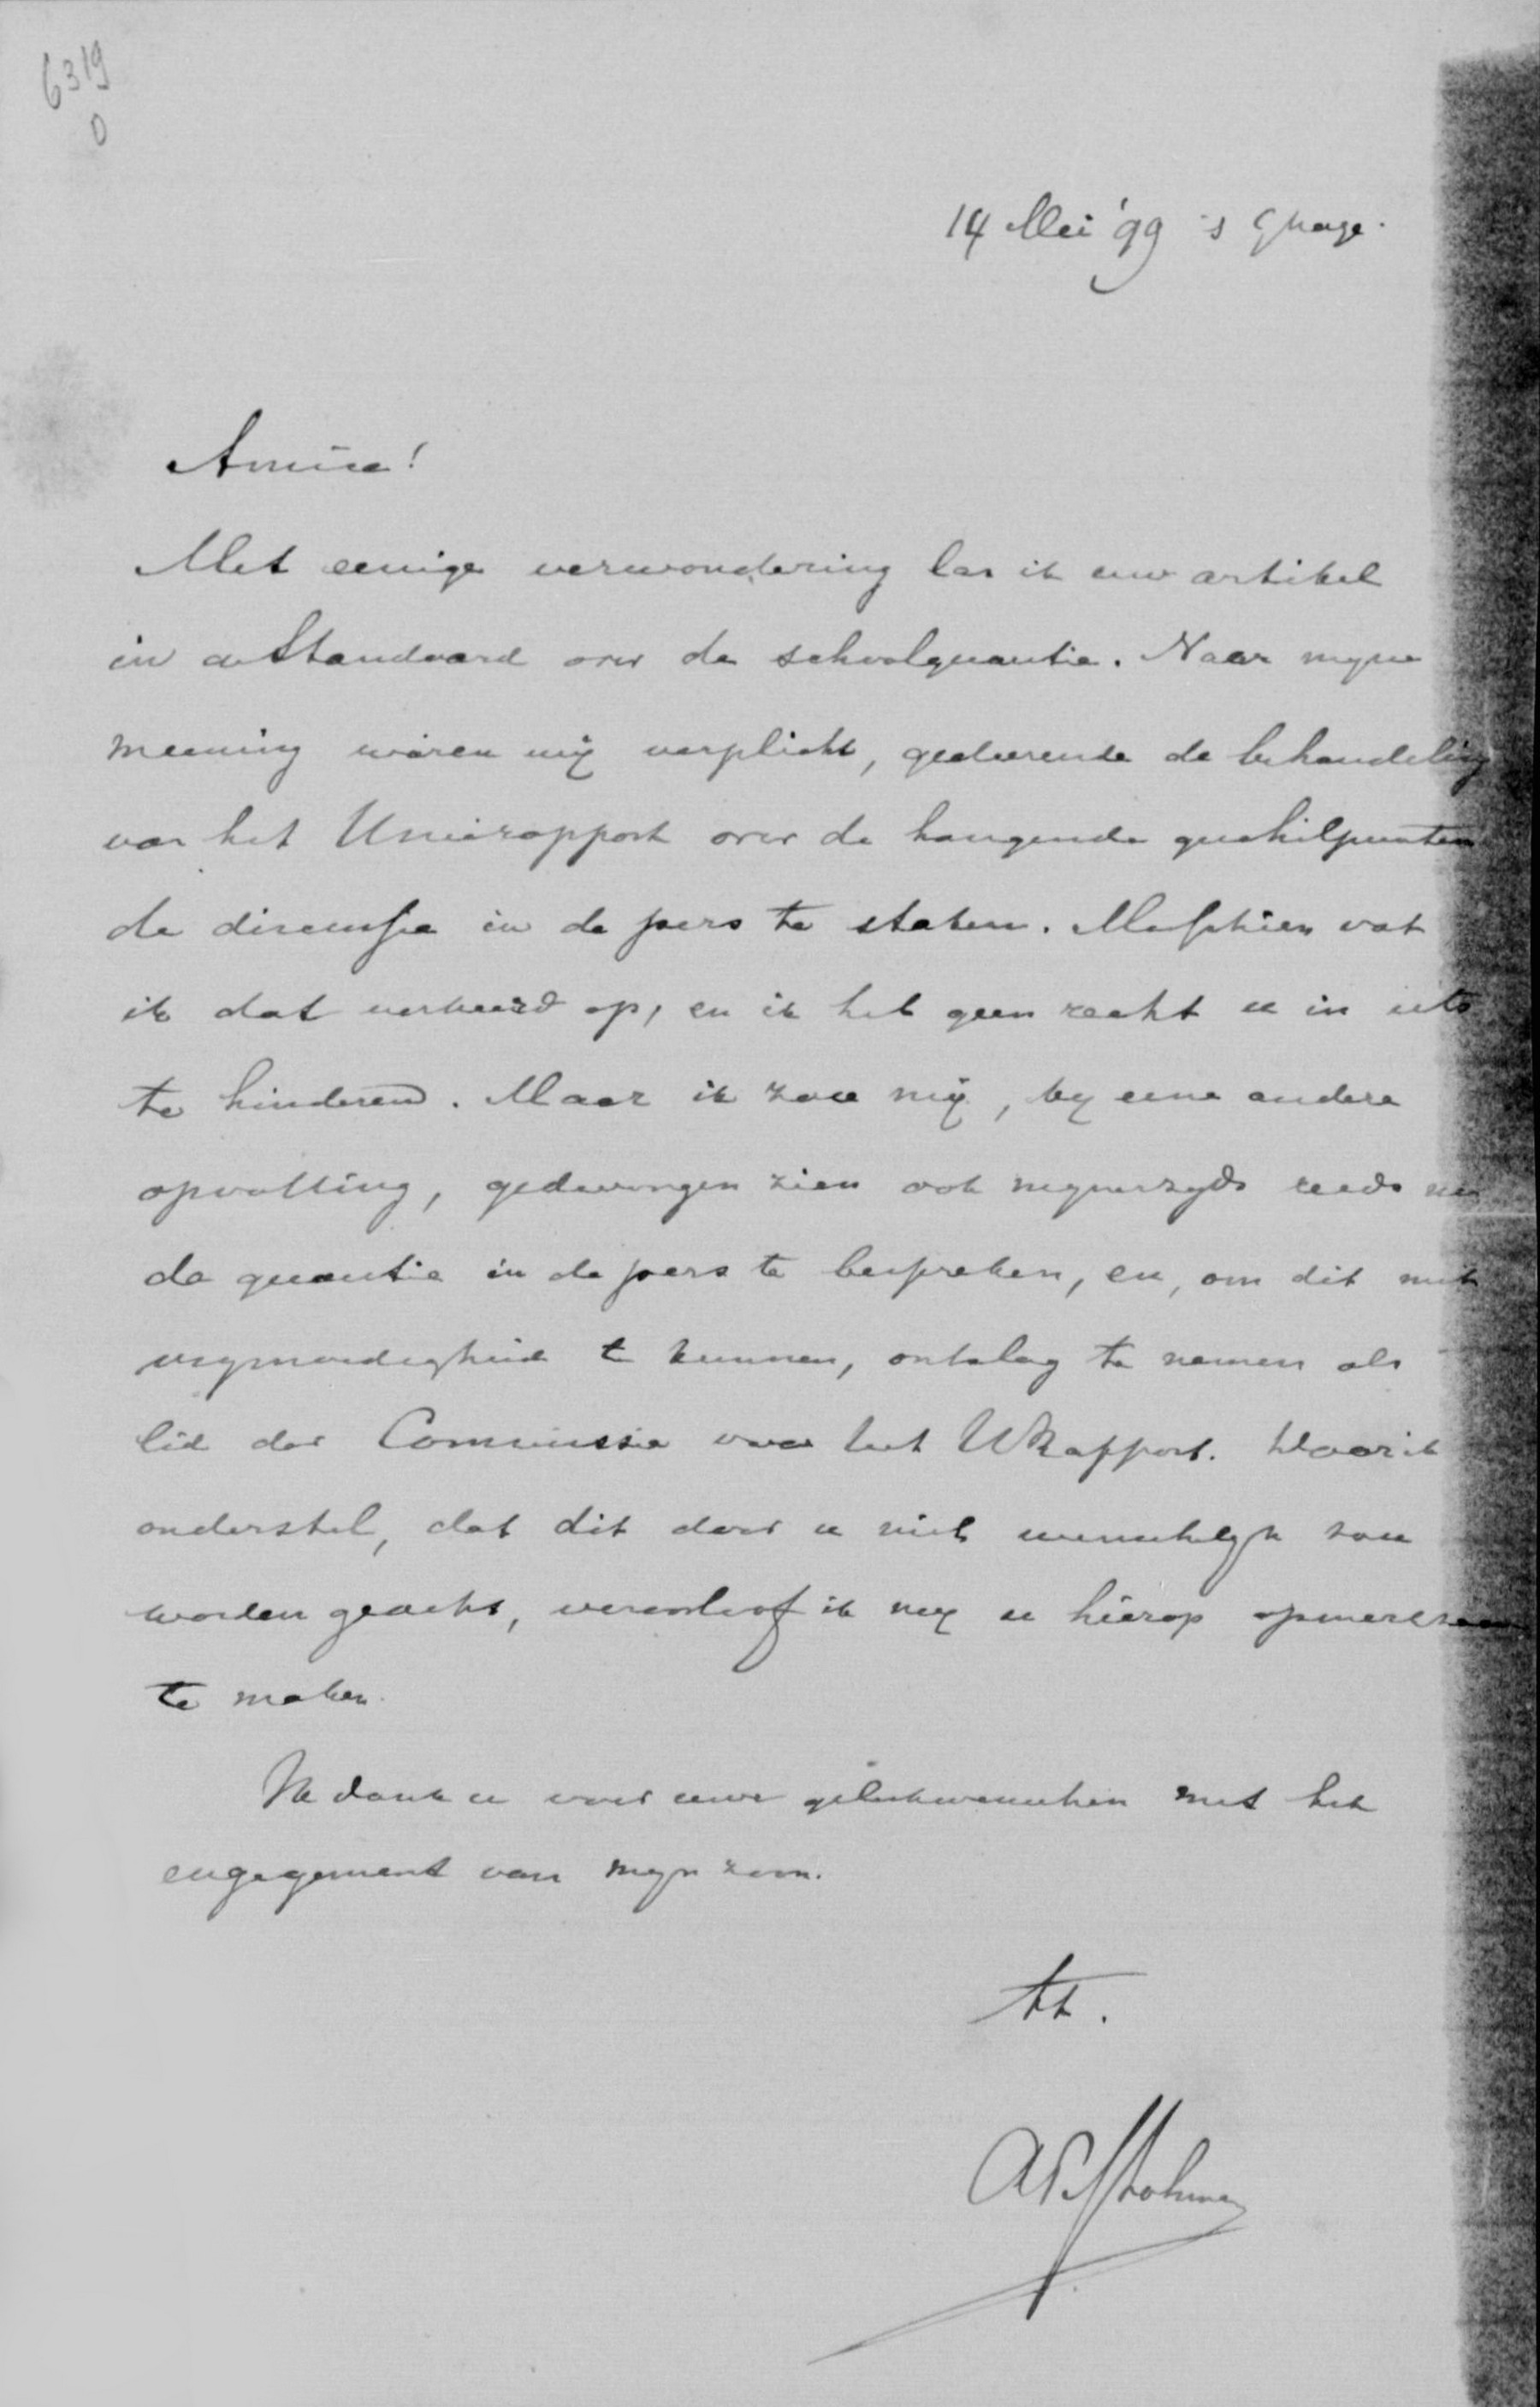 6319
0
14 Mei '99 's Ghage.
Amice!
Met eenige verwondering las ik uw artikel
in de Standaard over de schoolquaestie. Naar myne
meening waren wij verplicht, gedurende de behandeling
van het Unierapport over de hangende geschilpunten
de discussie in de pers te staken. Misschien vat
ik dat verkeerd op, en ik heb geen recht u in iets
te hinderen. Maar ik zou mij, by eene andere
opvatting, gedwongen zien ook mynerzyds reeds nu
de quaestie in de pers te bespreken, en, om dit met
vrymoedigheid te kunnen, ontslag te nemen als
lid der Commissie voor het URapport. Daar ik
onderstel, dat dit door u niet wenschelyk zou
worden geacht, veroorloof ik my u hierop opmerkzaam
te maken.
Ik dank u voor uwe gelukwenschen met het
engagement van myn zoon.
tt.
AFSLohman